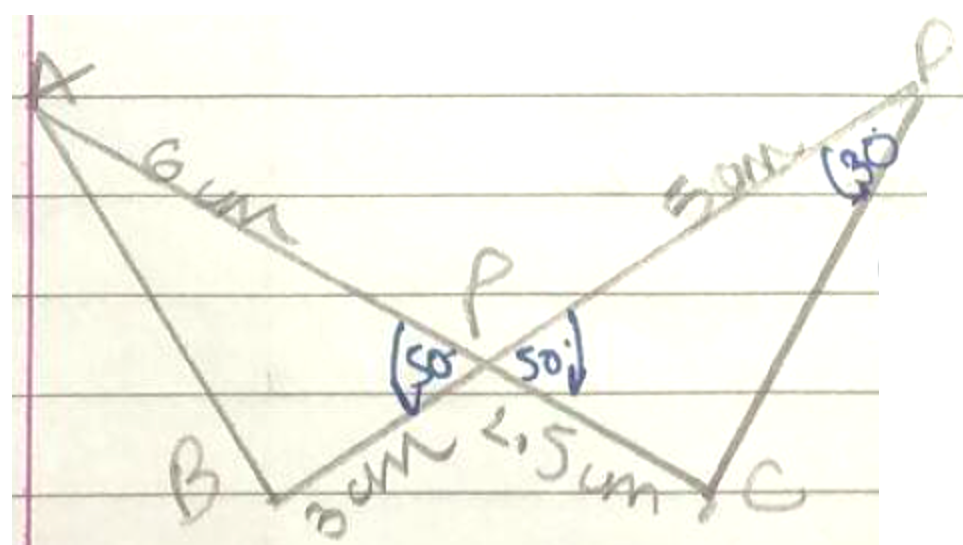 A
D
6 cm
5 cm
30°
P
50°
50°
B
3 cm
2.5 cm
C